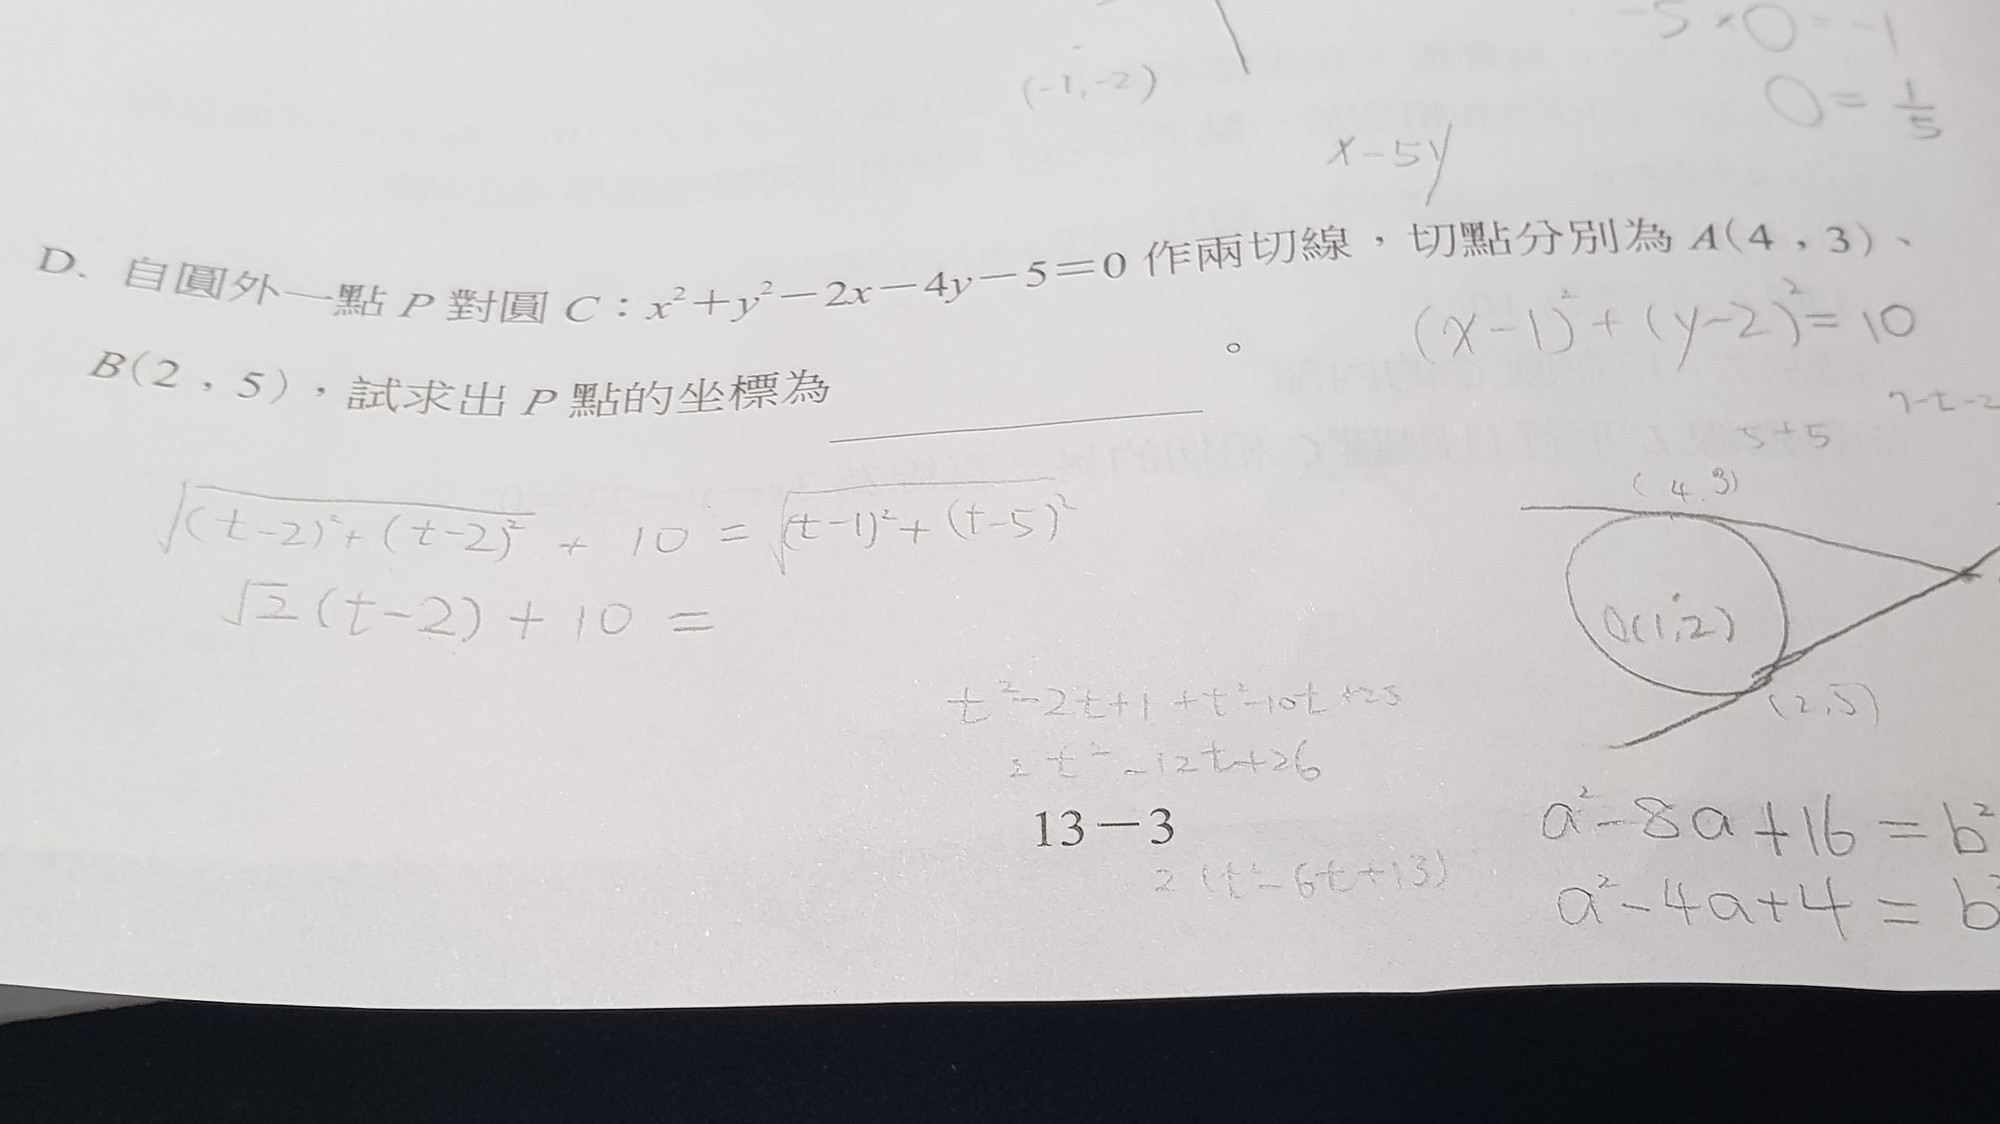 -5×0=-1
0=1/5
(-1,-2)
x-5y
D. 自圓外一點 P 對圓 C：x²+y²-2x-4y-5=0 作兩切線，切點分別為 A(4，3)、
B(2，5)，試求出 P 點的坐標為________。
(x-1)²+(y-2)²=10
7-t-2
5+5
(4.3)
√(t-2)²+(t-2)² + 10 = √(t-1)²+(t-5)²
√2(t-2)+10=
O(1,2)
(2,5)
t²-2t+1+t²-10t+25
2t²-12t+26
13－3
2(t²-6t+13)
a²-8a+16=b²
a²-4a+4=b²